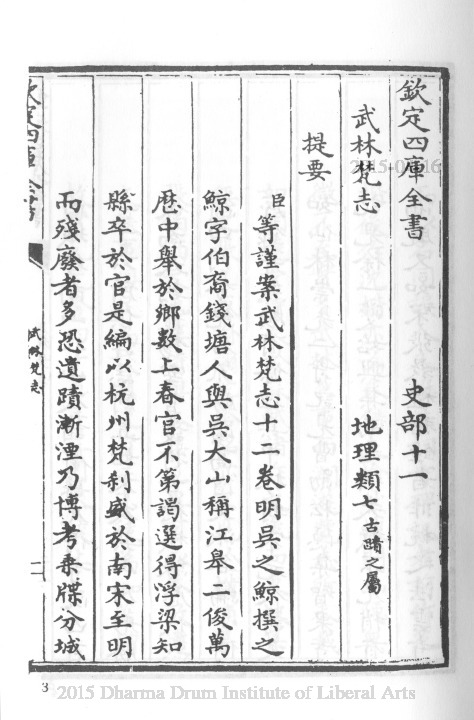 欽定四庫全書 史部十一
武林梵志 地理類七古蹟之屬
提要
臣等謹案武林梵志十二卷明吳之鯨撰之
鯨字伯裔錢塘人與吳大山稱江臯二俊萬
歴中舉於鄉數上春官不第謁選得浮梁知
縣卒於官是編以杭州梵刹盛於南宋至明
而殘廢者多恐遺蹟漸湮乃博考乗牒分城
欽定四庫全書
武林梵志
3
2015 Dharma Drum Institute of Liberal Arts